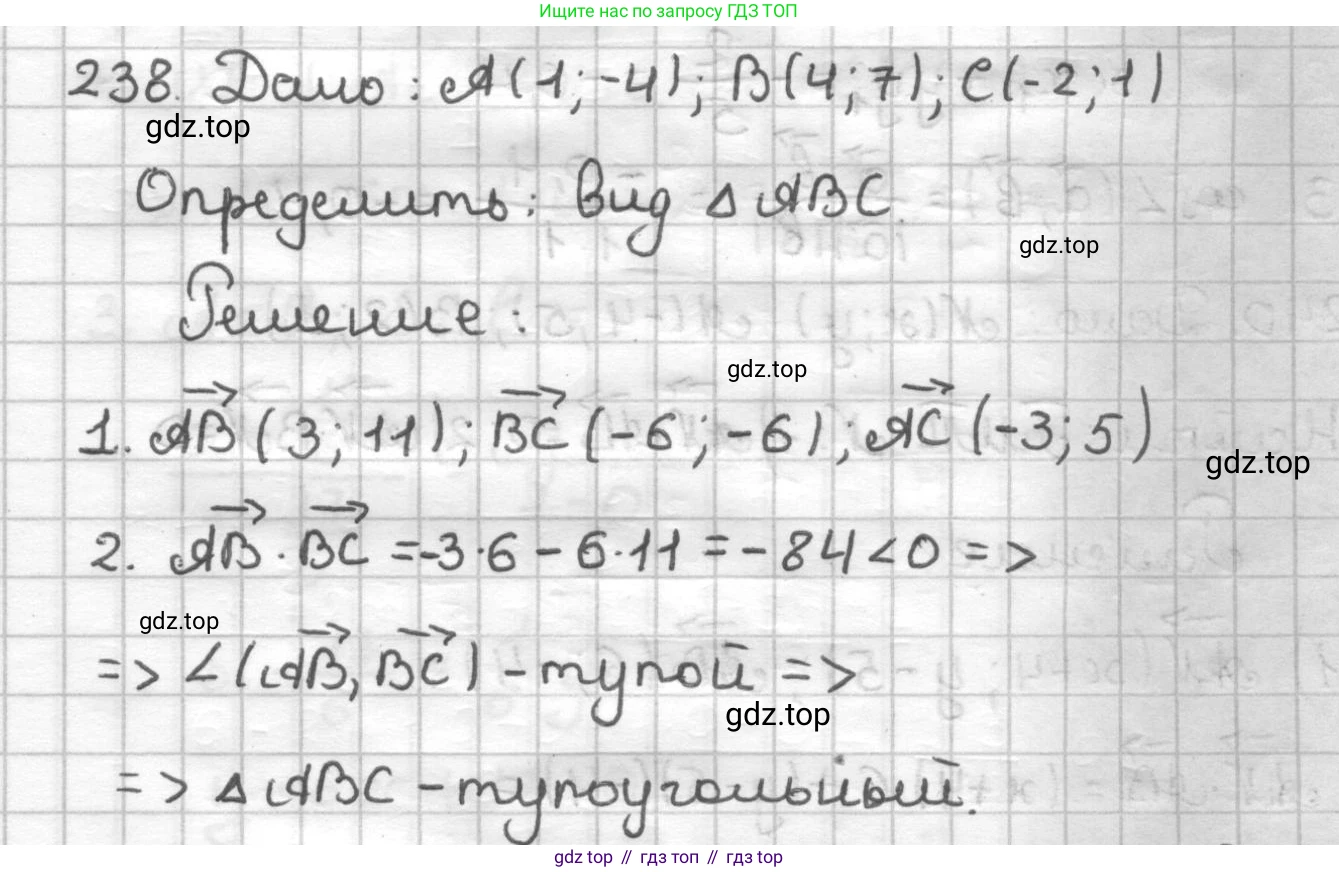 Ищите нас по запросу ГДЗ ТОП
238. Дано: A(1;-4); B(4;7); C(-2;1)
gdz.top
Определить: Вид △ABC.
gdz.top
Решение:
gdz.top
1. AB→(3;11); BC→(-6;-6); AC→(-3;5)
gdz.top
2. AB→·BC→=-3·6-6·11=-84<0 =>
gdz.top
=> ∠(AB→,BC→)-тупой =>
gdz.top
=> △ABC-тупоугольный.
gdz top // гдз топ // gdz top